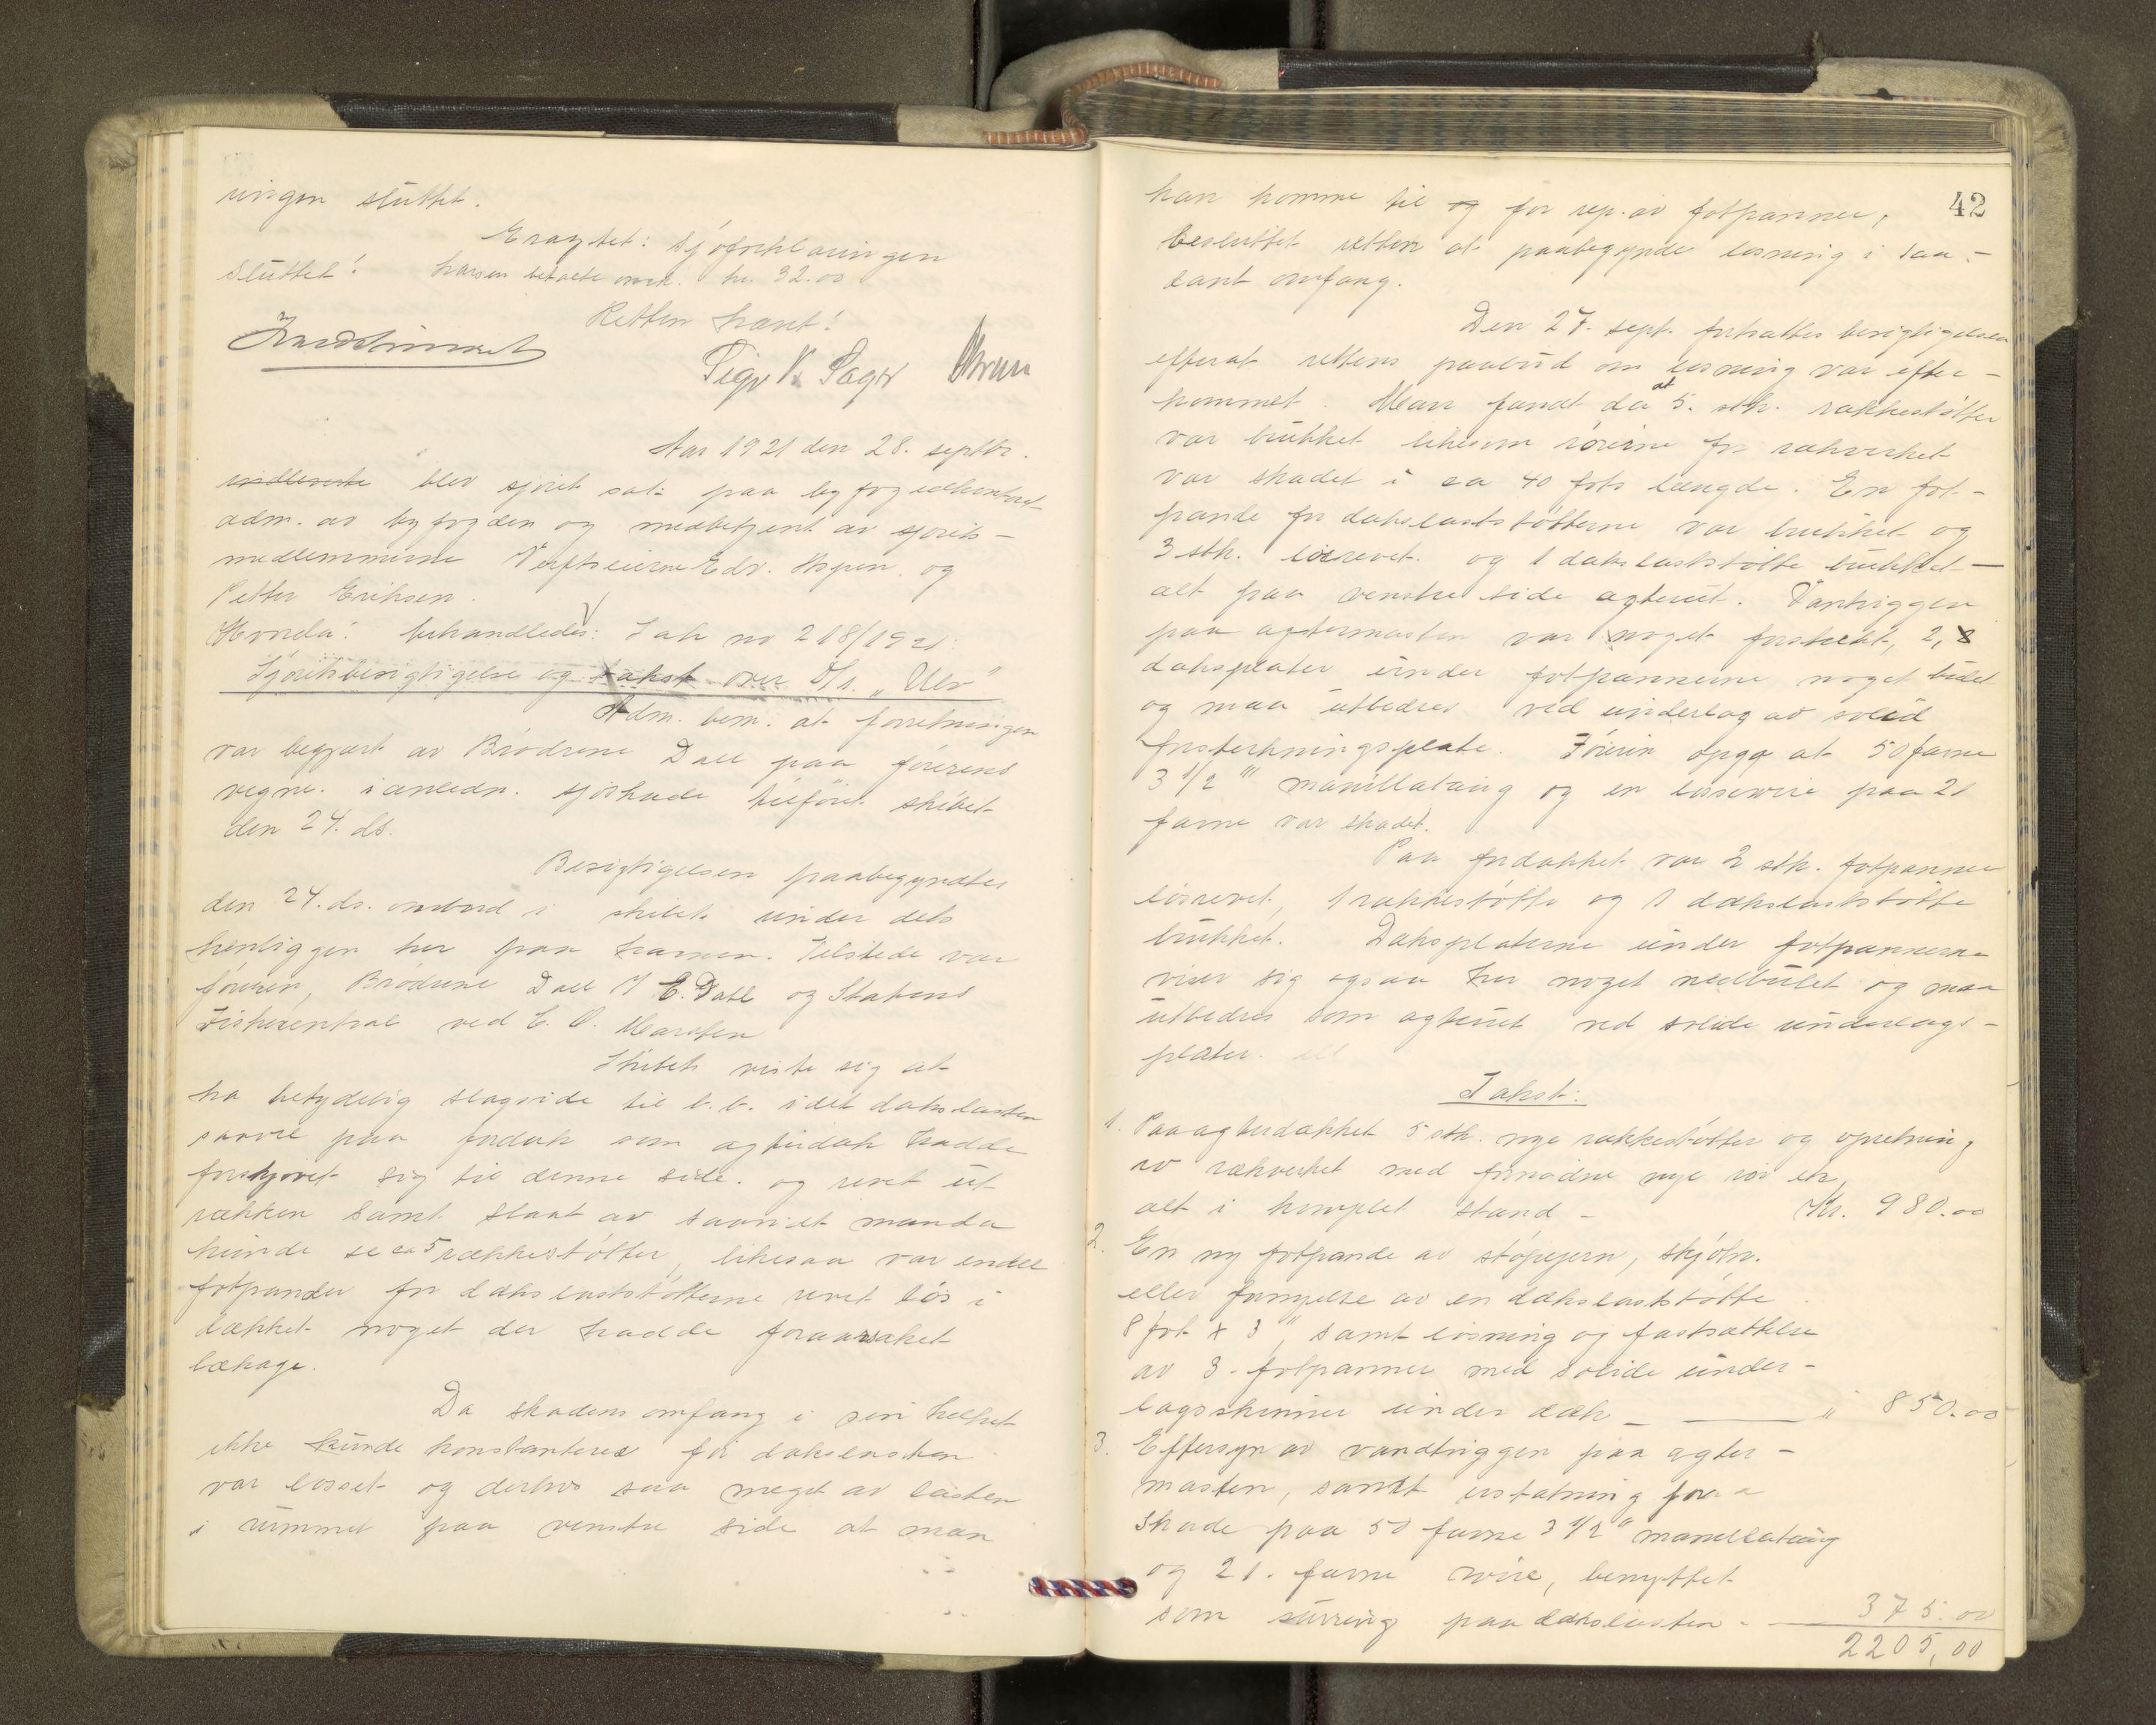 ningen sluttet.
Eragtet: Sjøforklaringen
sluttet! Larsen betalte omk. kr. 32.00
Retten hævt!
Aar 1921 den 28. septbr.
blev sjøret sat paa byfogedkontoret
adm. av byfogden og medbetjent av sjørets-
medlemmerne Verftseierne Edv. Aspen og
Petter Eriksen.
Hvorda: behandledes: Sak no 218/1921:
Sjøretsbesigtigelse og takst over D/s. „Ulv"
Adm. bem. at forretningen
var begjært av Brødrene Dall paa førerens
vegne. i anledn. sjøskade tilføiet skibet
den 24. ds.
Besigtigelsen paabegyndtes
den 24. ds. ombord i skibet under dets
henliggen her paa havnen. Tilstede var
føreren, Brødrene Dall v/ E. Dall og Statens
Fiskecentral ved E. O. Karlsen
Skibet viste sig at
ha betydelig slagside til b.b. idet dækslasten
saavel paa fordæk som agterdæk hadde
forskjøvet sig til denne side. og revet ut
rækken samt slaat av saavidt man da
kunde se ca 5 rækkestøtter, likesaa var endel
fotpander for dækslaststøtterne revet løs i
dækket noget der hadde foraarsaket
lækage.
Da skadens omfang i sin helhet
ikke kunde konstanteres før dækslasten
var losset og derhos saa meget av lasten
i rummet paa venstre side at man
42
kan komme til og for rep. av fotpanner,
besluttet retten at paabegynde losning i saa-
dant omfang.
Den 27. sept. fortsattes besigtigelsen
efterat rettens paabud om losning var efter-
kommet. Man fandt da at 5. stk. rækkestøtter
var brukket likesom rørene for rækverket
var skadet i ca 40 fots længde. En fot-
pande for dækslaststøtterne var brukket og
3 stk. løsrevet. og 1 dækslaststøtte brukket—
alt paa venstre side agterut. Vantriggen
paa agtermasten var noget forstrækt, 2,
dæksplater under fotpannerne noget bulet
og maa utbedres ved underlag av solid
forsterkningsplate. Føreren opga at 50 favne
3 1/2 "' manillataug og en lossewire paa 21
favne var skadet.
Paa fordækket var 2 stk. fotpanner
løsrevet, 1 rækkestøtte og 1 dækslaststøtte
brukket. Dæksplaterne under fotpannerne
viser sig ogsaa her noget nedbulet og maa
utbedres som agterut ved solide underlags-
plater.
Takst:
1. Paa agterdækket 5 stk. nye rækkestøtter og opretning
av rækverket med fornødne nye rør etc,
alt i komplet stand - Kr. 980.00
2. En ny fotpande av støpejern, skjøtn.
eller fornyelse av en dækslaststøtte
8 fot x 3", samt løsning og fastsættelse
av 3. fotpanner med solide under-
lagsskinner under dæk — " 850.00
3. Eftersyn av vandtriggen paa agter-
masten, samt erstatning for
skade paa 50 favne 3 1/2" manillataug
og 21. favne wire, benyttet
som surring paa dækslasten - 375.00
2205,00